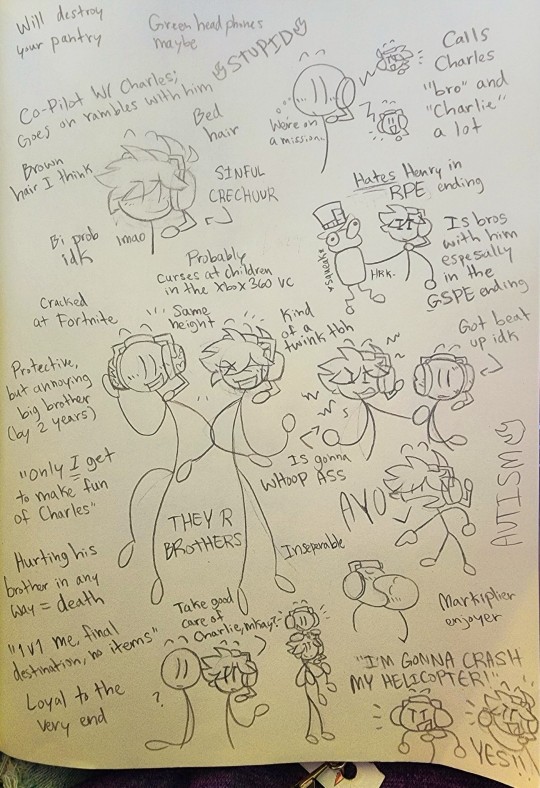 Will destroy
your pantry
Green headphones
maybe
STUPID
Co-Pilot W/ Charles;
Goes on rambles with him
Calls
Charles
"bro" and
"Charlie"
a lot
We're on
a mission..
Bed
hair
Brown
hair I think
SINFUL
CRECHUUR
Bi prob
idk
lmao
Hates Henry in
RPE ending
*SQUEAK*
HRK-
Is bros
with him
espesally
in the
GSPE ending
Probably
curses at children
in the Xbox 360 VC
Cracked
at Fortnite
Same
height
Kind
of a
twink tbh
Got beat
up idk
Protective,
but annoying
big brother
(by 2 years)
Is gonna
WHOOP ASS
"Only I get
to make fun
of Charles"
THEY R
BROTHERS
AYO
AUTISM
Inseperable
Hurting his
brother in any
way = death
Markiplier
enjoyer
"1v1 me, final
destination, no items"
Take good
care of
Charlie, mkay?
Loyal to the
very end
?
"I'M GONNA CRASH
MY HELICOPTER!"
YES!!